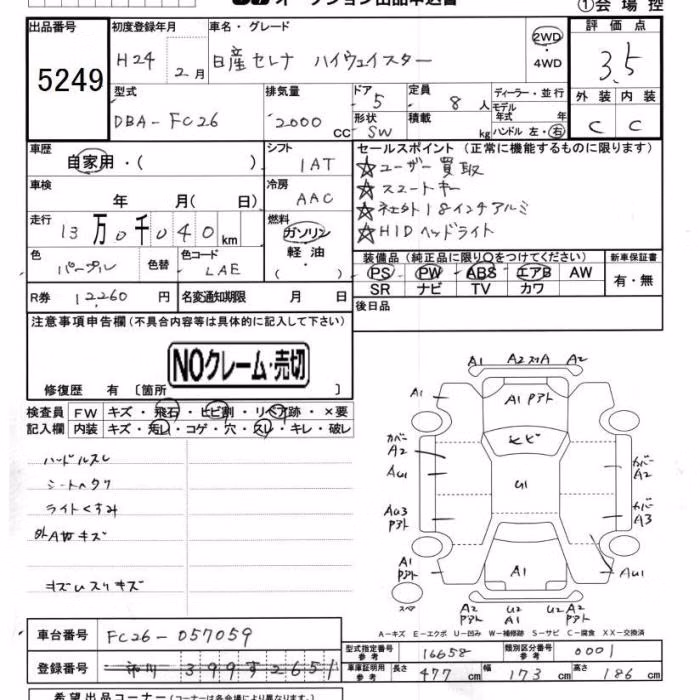 オークション出品申込書
①会場控
出品番号
5249
初度登録年月
H24年2月
車名・グレード
日産セレナ ハイウェイスター
2WD
・
4WD
評価点
3.5
型式
DBA-FC26
排気量
2000cc
ドア
5
定員
8人
形状
SW
積載
kg
ディーラー・並行
モデル年式 年式
ハンドル 左・右
外装 内装
C C
車歴
自家用・( )
シフト
IAT
セールスポイント(正常に機能するものに限ります)
☆ユーザー買取
☆スマートキー
☆社外18インチアルミ
☆HIDヘッドライト
車検
年 月( 日)
冷房
AAC
走行
13万0千040km
燃料
ガソリン
軽油
( )
色
パープル
色替
色コード
LAE
装備品(純正品に限り○をつけてください)
新車保証書
PS PW ABS エアB AW
SR ナビ TV カワ
有・無
R券
12,260円
名変通知期限 月 日
後日品
注意事項申告欄(不具合内容等は具体的に記入して下さい)
NOクレーム・売切
修復歴 有〔箇所 〕
検査員記入欄
FW キズ・飛石・ヒビ割・リペア跡・×要
内装 キズ・汚レ・コゲ・穴・スレ・キレ・破レ
ハンドルスレ
シートヘタリ
ライトくすみ
A1 A2 A2
A1
A1 Pアト
ヒビ
カバー
A2
AU1
カバー
A2
U1
AU3
Pアト
カバー
A3
A1
Pアト
A1
AU1
スペア
A2
Pアト
U2
A1
U2 A2
Pアト
A-キズ E-エクボ U-凹み W-補修跡 S-サビ C-腐食 XX-交換済
車台番号
FC26-057059
型式指定番号 参考
16658
類別区分番号 参考
0001
登録番号
市川 399す2651
車庫証明用 参考
長さ 477cm 幅 173cm 高さ 186cm
希望出品コーナー(コーナーは各会場により異なります。)